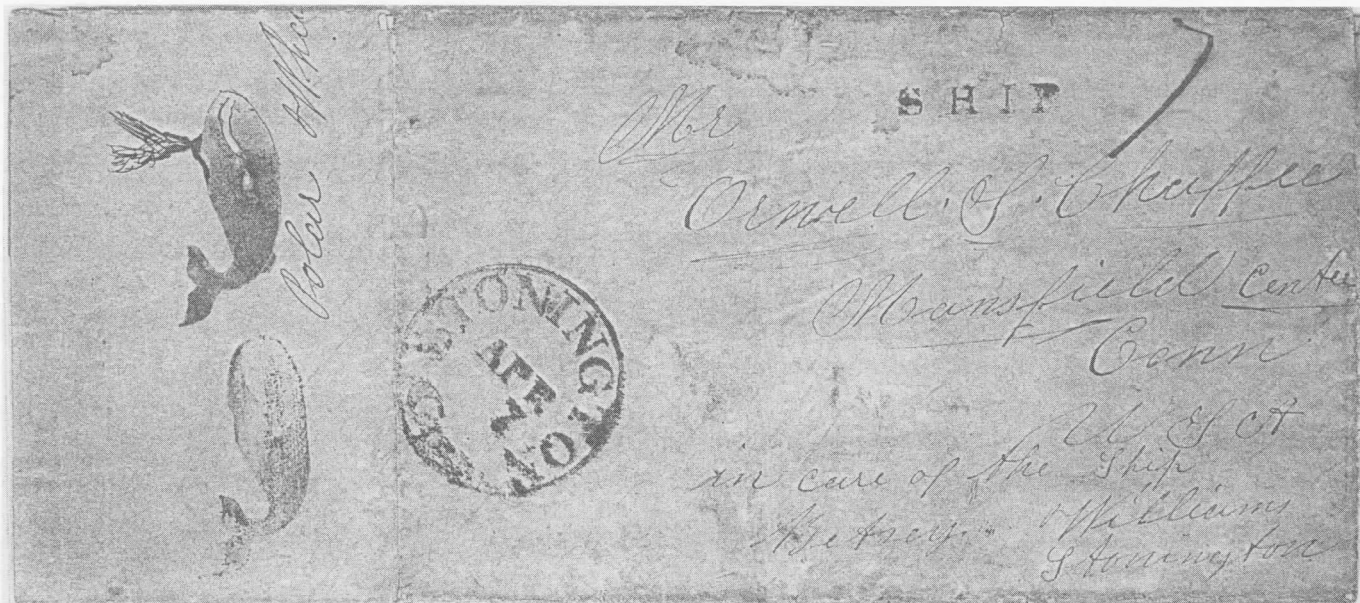 Polar Wha
SHIP
7
Mr
Orwell. S. Chaffee
Mansfield Center
Conn
U S A
in care of the Ship
Betsey Williams
Stonington
STONINGTON
APR
7